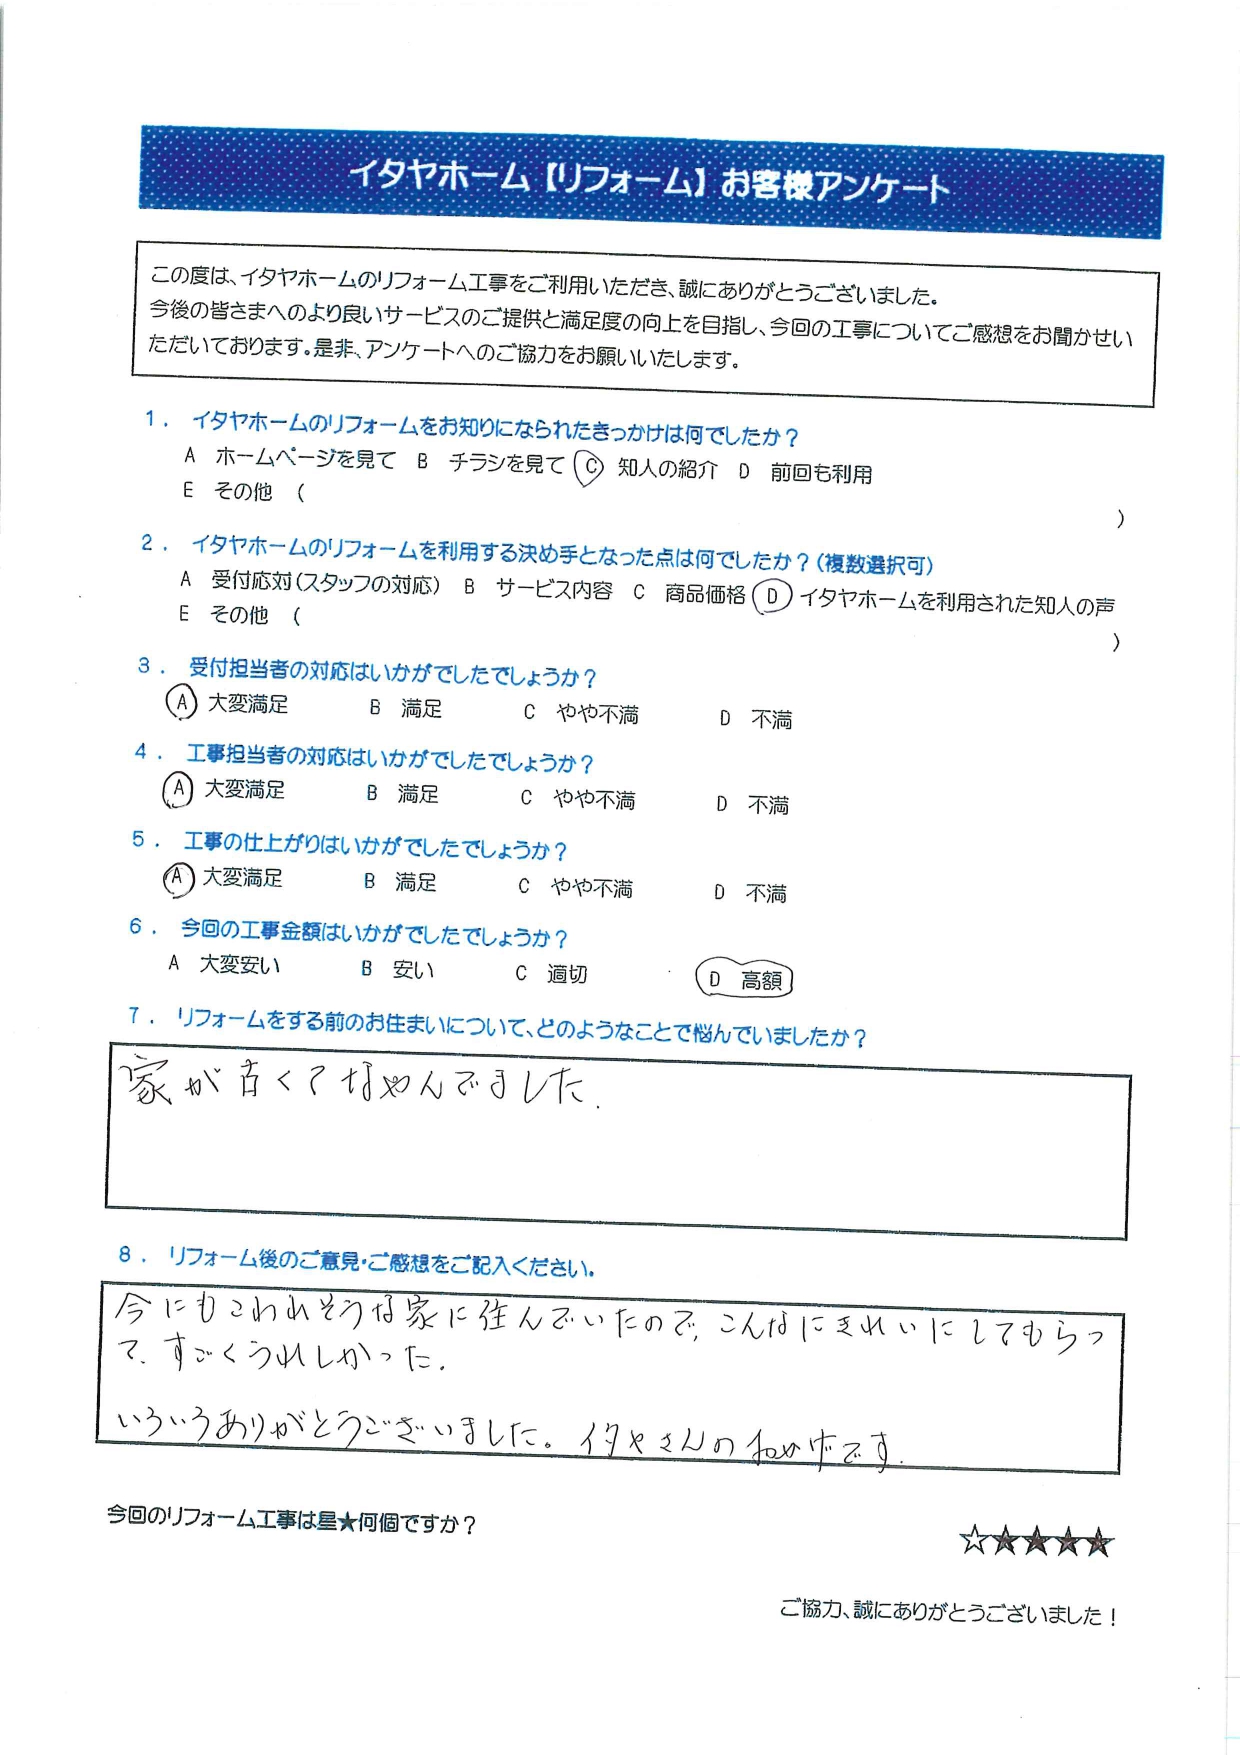 イタヤホーム【リフォーム】お客様アンケート
この度は、イタヤホームのリフォーム工事をご利用いただき、誠にありがとうございました。
今後の皆さまへのより良いサービスのご提供と満足度の向上を目指し、今回の工事についてご感想をお聞かせい
ただいております。是非、アンケートへのご協力をお願いいたします。
1. イタヤホームのリフォームをお知りになられたきっかけは何でしたか？
A ホームページを見て B チラシを見て C 知人の紹介 D 前回も利用
E その他 ( )
2. イタヤホームのリフォームを利用する決め手となった点は何でしたか？(複数選択可)
A 受付応対(スタッフの対応) B サービス内容 C 商品価格 D イタヤホームを利用された知人の声
E その他 ( )
3. 受付担当者の対応はいかがでしたでしょうか？
A 大変満足 B 満足 C やや不満 D 不満
4. 工事担当者の対応はいかがでしたでしょうか？
A 大変満足 B 満足 C やや不満 D 不満
5. 工事の仕上がりはいかがでしたでしょうか？
A 大変満足 B 満足 C やや不満 D 不満
6. 今回の工事金額はいかがでしたでしょうか？
A 大変安い B 安い C 適切 D 高額
7. リフォームをする前のお住まいについて、どのようなことで悩んでいましたか？
家が古くてなやんでました.
8. リフォーム後のご意見・ご感想をご記入ください。
今にもこわれそうな家に住んでいたので、こんなにきれいにしてもらっ
て、すごくうれしかった.
いろいろありがとうございました。イタヤさんのおかげです.
今回のリフォーム工事は星★何個ですか？
☆★★★★
ご協力、誠にありがとうございました！